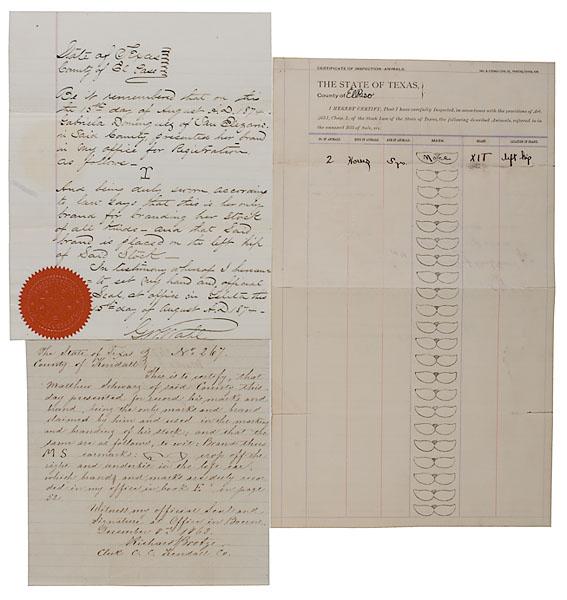 State of Texas
County of El Paso
Be it remembered that on this
the 15th day of August A.D. 1874
Gabriela Dominguez of San Elizario
in Said County presented her brand
in my office for Registration
as follows —
I
And being duly sworn according
to law Says that this is her only
brand for branding her Stock
of all kinds — and that Said
brand is placed on the left hip
of Said Stock —
In testimony whereof I hereun-
to set my hand and official
Seal at office in Ysleta this
15th day of August A.D. 1874 —
The State of Texas
County of Kendall
No 267.
This is to certify, that
Matthew Schwarz of said County this
day presented for record his marks and
brand, being the only marks and brand
claimed by him and used in the marking
and branding of his stock, and that the
same are as follows, to wit: Brand thus
M S earmark: crop off the
right and underbit in the left ear,
which brand and marks are duly recor-
ded in my office in book on page
22.
Witness my official Seal and
Signature at Office in Boerne,
December 1862.
Richard
Clerk C. C. Kendall Co.
CERTIFICATE OF INSPECTION-ANIMALS.
THE STATE OF TEXAS,
County of El Paso
I HEREBY CERTIFY, That I have carefully inspected, in accordance with the provisions of Art.
Chap. 5, of the Stock Law of the State of Texas, the following described Animals, referred to in
the annexed Bill of Sale, viz.
NO. OF ANIMALS. KIND OF ANIMALS. AGE OF ANIMALS. MARKS. BRAND. LOCATION OF BRAND.
2 5 yrs. XIT left hip